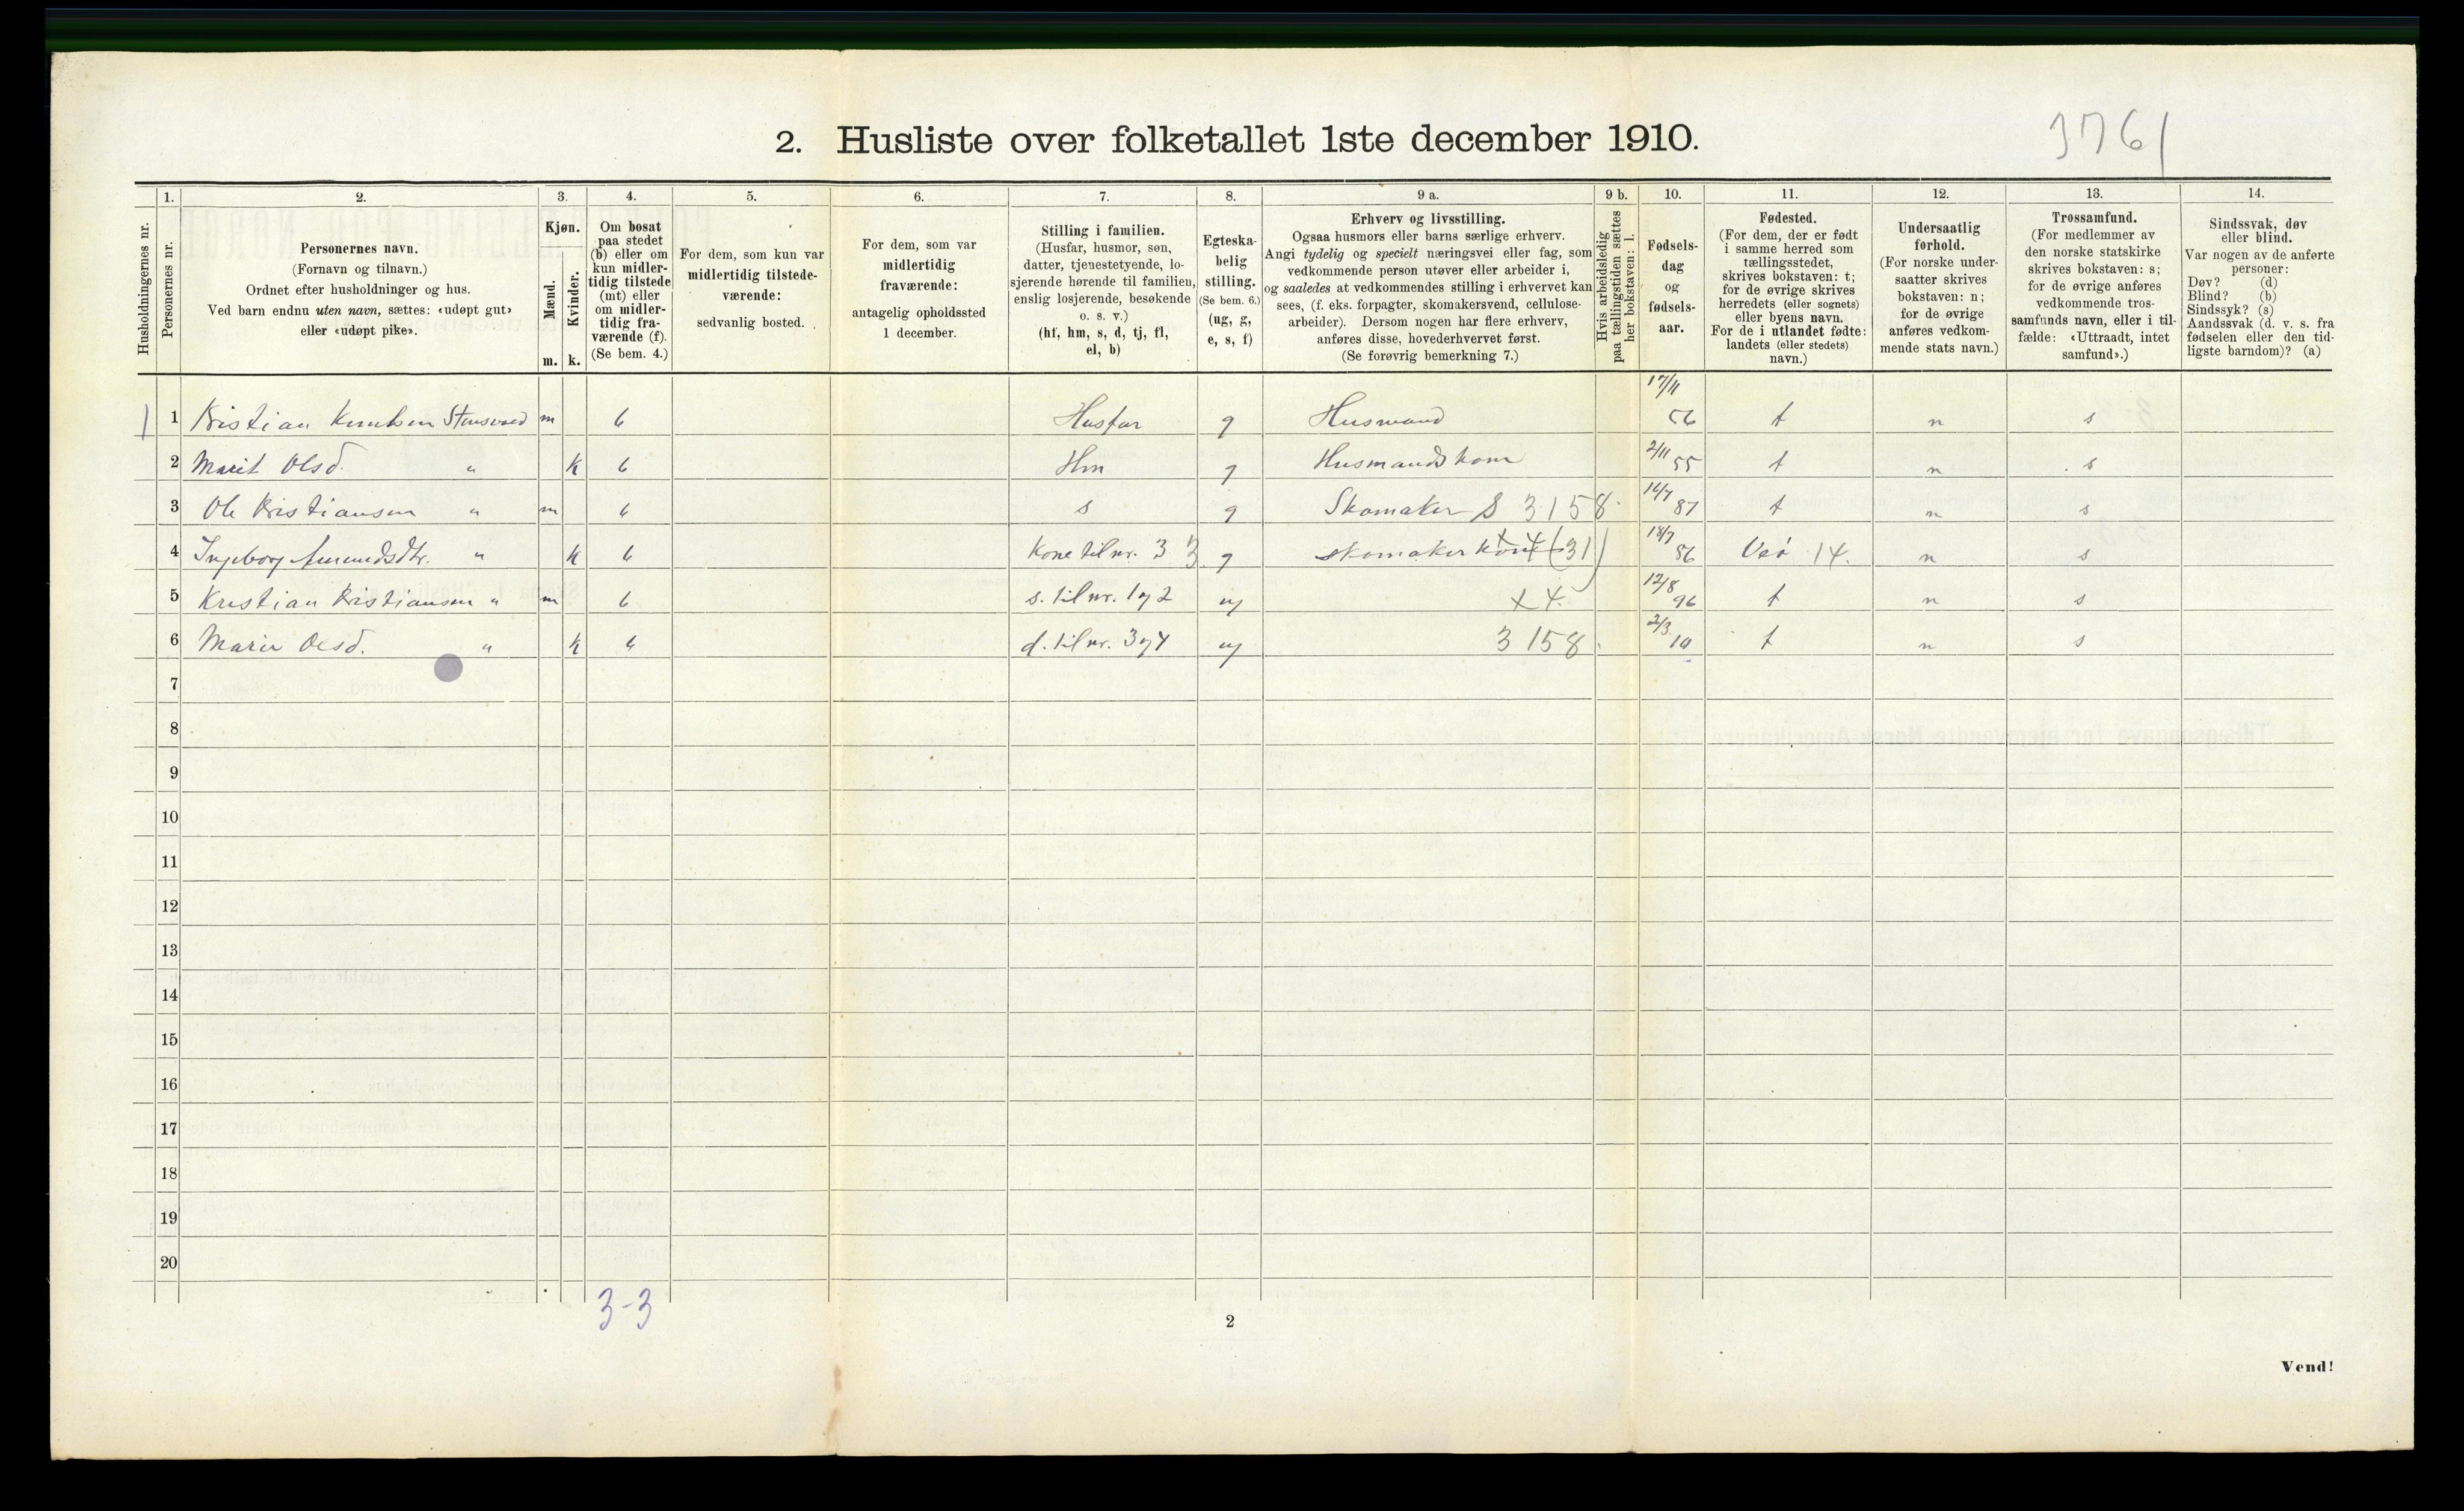 3761
2. Husliste over folketallet 1ste december 1910.
1. 2. 3. 4. 5. 6. 7. 8. 9 a. 9 b. 10. 11. 12. 13. 14.
Husholdningernes nr.
Personernes nr.
Personernes navn.
(Fornavn og tilnavn.)
Ordnet efter husholdninger og hus.
Ved barn endnu uten navn, sættes: «udøpt gut»
eller «udøpt pike».
Kjøn.
Mænd.
Kvinder.
m. k.
Om bosat
paa stedet
(b) eller om
kun midler-
tidig tilstede
(mt) eller
om midler-
tidig fra-
værende (f).
(Se bem. 4.)
For dem, som kun var
midlertidig tilstede-
værende:
sedvanlig bosted.
For dem, som var
midlertidig
fraværende:
antagelig opholdssted
1 december.
Stilling i familien.
(Husfar, husmor, søn,
datter, tjenestetyende, lo-
sjerende hørende til familien,
enslig losjerende, besøkende
o. s. v.)
(hf, hm, s, d, tj, fl,
el, b)
Egteska-
belig
stilling.
(Se bem. 6.)
(ug, g,
e, s, f)
Erhverv og livsstilling.
Ogsaa husmors eller barns særlige erhverv.
Angi tydelig og specielt næringsvei eller fag, som
vedkommende person utøver eller arbeider i,
og saaledes at vedkommendes stilling i erhvervet kan
sees, (f. eks. forpagter, skomakersvend, cellulose-
arbeider). Dersom nogen har flere erhverv,
anføres disse, hovederhvervet først.
(Se forøvrig bemerkning 7.)
Hvis arbeidsledig
paa tællingstiden sættes
her bokstaven: l.
Fødsels-
dag
og
fødsels-
aar.
Fødested.
(For dem, der er født
i samme herred som
tællingsstedet,
skrives bokstaven: t;
for de øvrige skrives
herredets (eller sognets)
eller byens navn.
For de i utlandet fødte:
landets (eller stedets)
navn.)
Undersaatlig
forhold.
(For norske under-
saatter skrives
bokstaven: n;
for de øvrige
anføres vedkom-
mende stats navn.)
Trossamfund.
(For medlemmer av
den norske statskirke
skrives bokstaven: s;
for de øvrige anføres
vedkommende tros-
samfunds navn, eller i til-
fælde: «Uttraadt, intet
samfund».)
Sindssvak, døv
eller blind.
Var nogen av de anførte
personer:
Døv? (d)
Blind? (b)
Sindssyk? (s)
Aandssvak (d. v. s. fra
fødselen eller den tid-
ligste barndom)? (a)
1 1 Kristian Knudsen m b Husfar g Husmand 17/11 56 t n s
2 Marit Olsd. " k b Hm g Husmandskone 2/11 55 t n s
3 Ole Kristiansen " m b s g Skomaker S 3158 87 t n s
4 Ingeborg Amundsdtr. " k b Kone til nr. 3 3 g skomakerkone (31) 18/7 86 Veø 14. n s
5 Kristian Kristiansen " m b s. til nr. 1 og 2 ug x 4. 12/8 96 t n s
6 Marie Olsd. " k b d. til nr. 3 og 4 ug 3158 2/3 10 t n s
7
8
9
10
11
12
13
14
15
16
17
18
19
20
3-3
2
Vend!